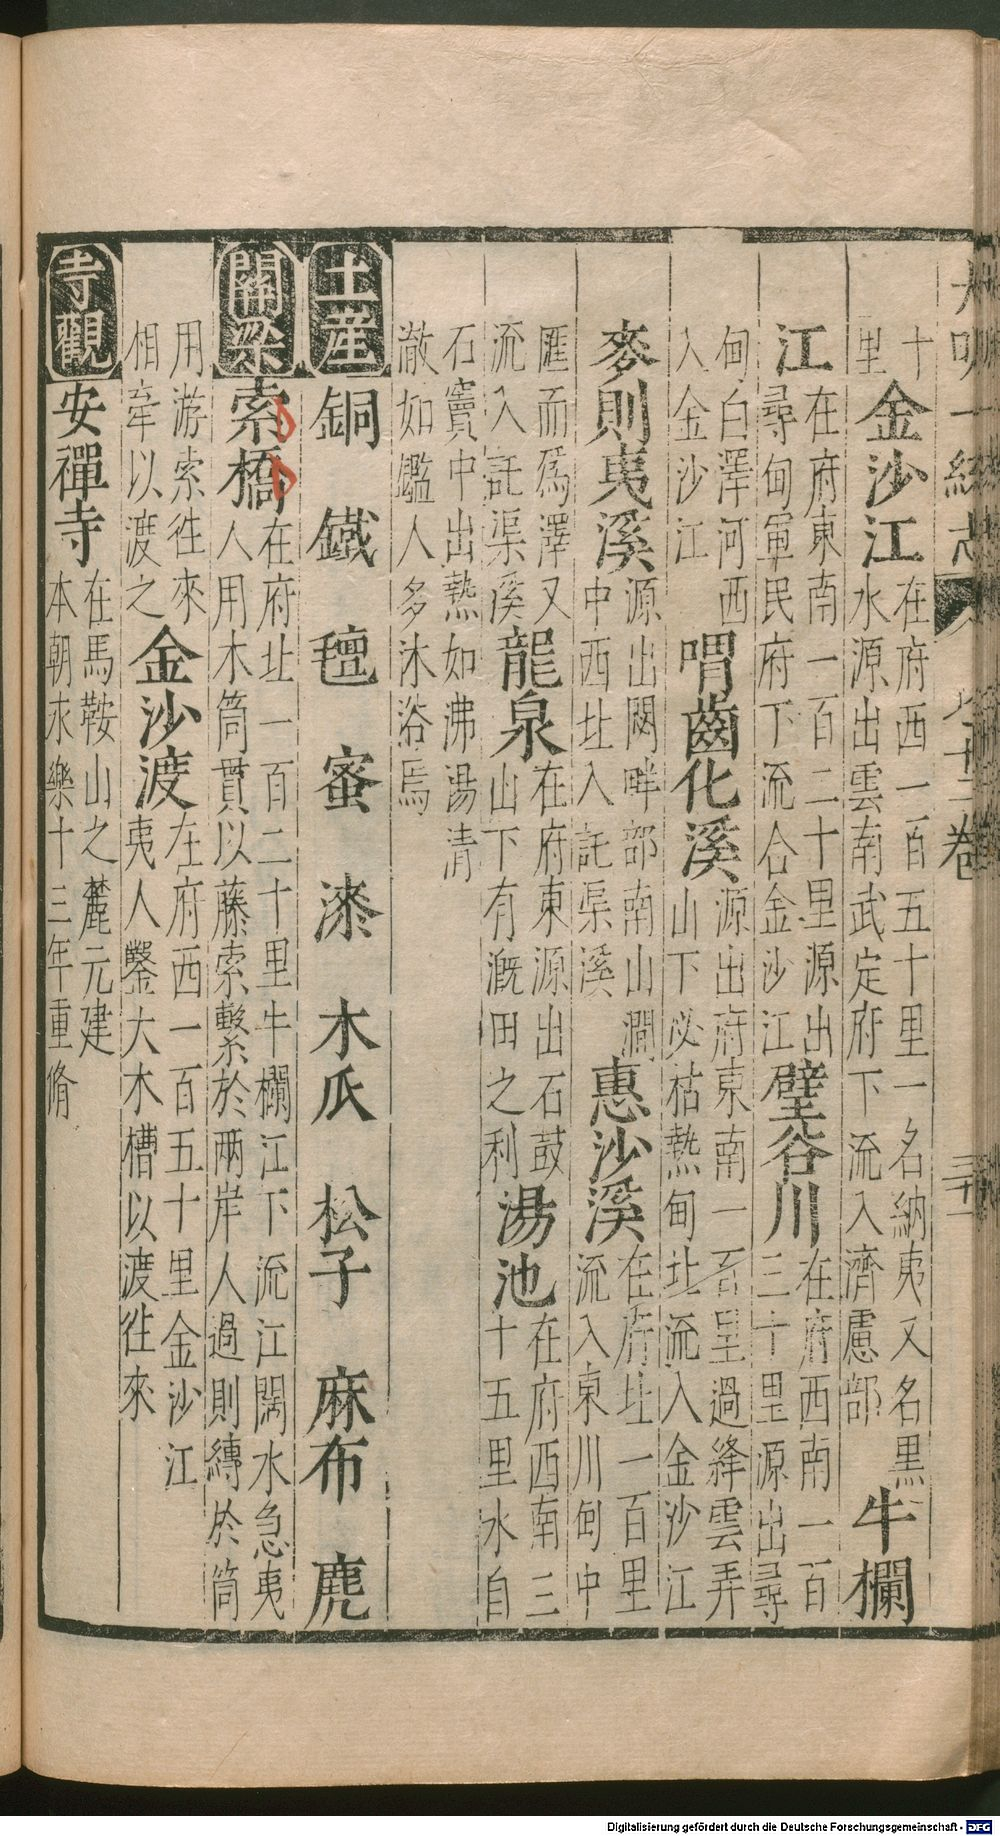 大明一統志 八十二卷 三十一
十里 金沙江 在府西一百五十里一名納夷又名黑水源出雲南武定府下流入濟慮部 牛欄
江 在府東南一百二十里源出尋甸軍民府下流合金沙江 壁谷川 在府西南一百三十里源出尋
甸白澤河西入金沙江 喟齒化溪 源出府東南一百里過絳雲弄山下必枯熱甸北流入金沙江
麥則夷溪 源出閟畔部南山澗中西北入託渠溪 惠沙溪 在府北一百里流入東川甸中
匯而爲澤又流入託渠溪 龍泉 在府東源出石鼓山下有漑田之利 湯池 在府西南三十五里水自
石竇中出熱如沸湯清澈如鑑人多沐浴焉
土産 銅 鐵 氊 蜜 漆 木瓜 松子 麻布 麂
關梁 索橋 在府北一百二十里牛欄江下流江闊水急夷人用木筒貫以藤索繫於兩岸人過則縛於筒
用游索徃來相牽以渡之 金沙渡 在府西一百五十里金沙江夷人鑿大木槽以渡徃來
寺觀 安禪寺 在馬鞍山之麓元建本朝永樂十三年重脩
Digitalisierung gefördert durch die Deutsche Forschungsgemeinschaft - DFG